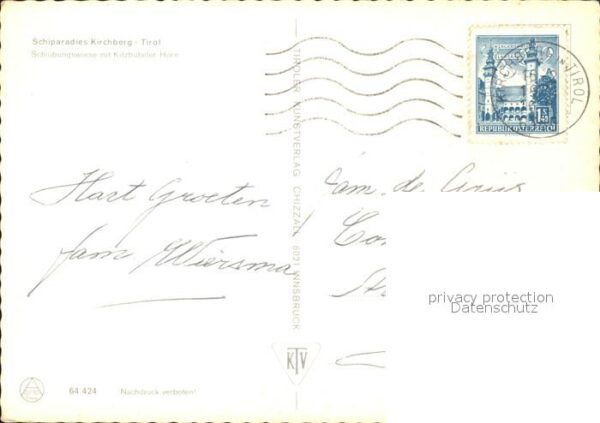 Schiparadies Kirchberg - Tirol
Schiübungswiese mit Kitzbüheler Horn
Hart Groeten
fam Wiersma
64 424
Nachdruck verboten!
TIROLER KUNSTVERLAG CHIZZALI 6021 INNSBRUCK
KTV
TIROL
REPUBLIK ÖSTERREICH
Fam. de
privacy protection
Datenschutz